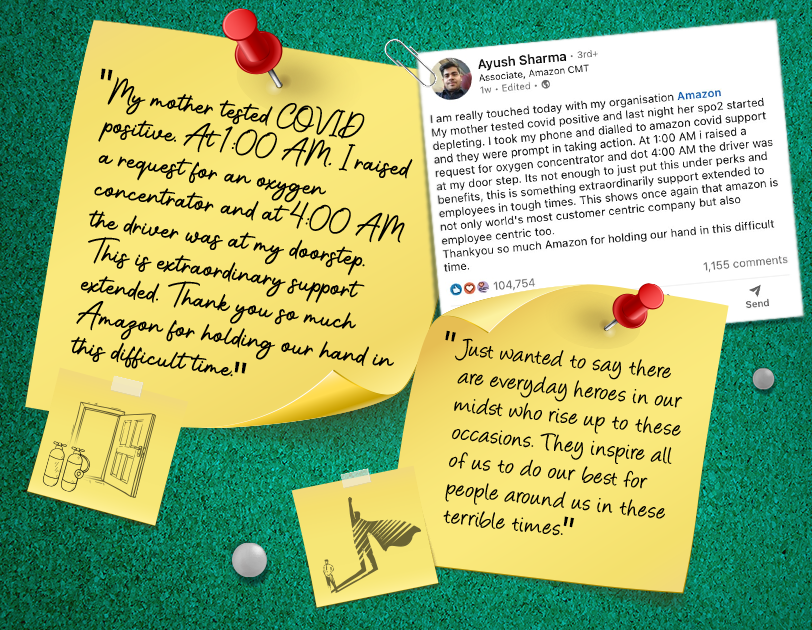 "My mother tested COVID
positive. At 1:00 AM. I raised
a request for an oxygen
concentrator and at 4:00 AM
the driver was at my doorstep.
This is extraordinary support
extended. Thank you so much
Amazon for holding our hand in
this difficult time."
Ayush Sharma · 3rd+
Associate, Amazon CMT
1w · Edited ·
I am really touched today with my organisation Amazon
My mother tested covid positive and last night her spo2 started
depleting. I took my phone and dialled to amazon covid support
and they were prompt in taking action. At 1:00 AM i raised a
request for oxygen concentrator and dot 4:00 AM the driver was
at my door step. Its not enough to just put this under perks and
benefits, this is something extraordinarily support extended to
employees in tough times. This shows once again that amazon is
not only world's most customer centric company but also
employee centric too.
Thankyou so much Amazon for holding our hand in this difficult
time.
104,754
1,155 comments
Send
"Just wanted to say there
are everyday heroes in our
midst who rise up to these
occasions. They inspire all
of us to do our best for
people around us in these
terrible times."